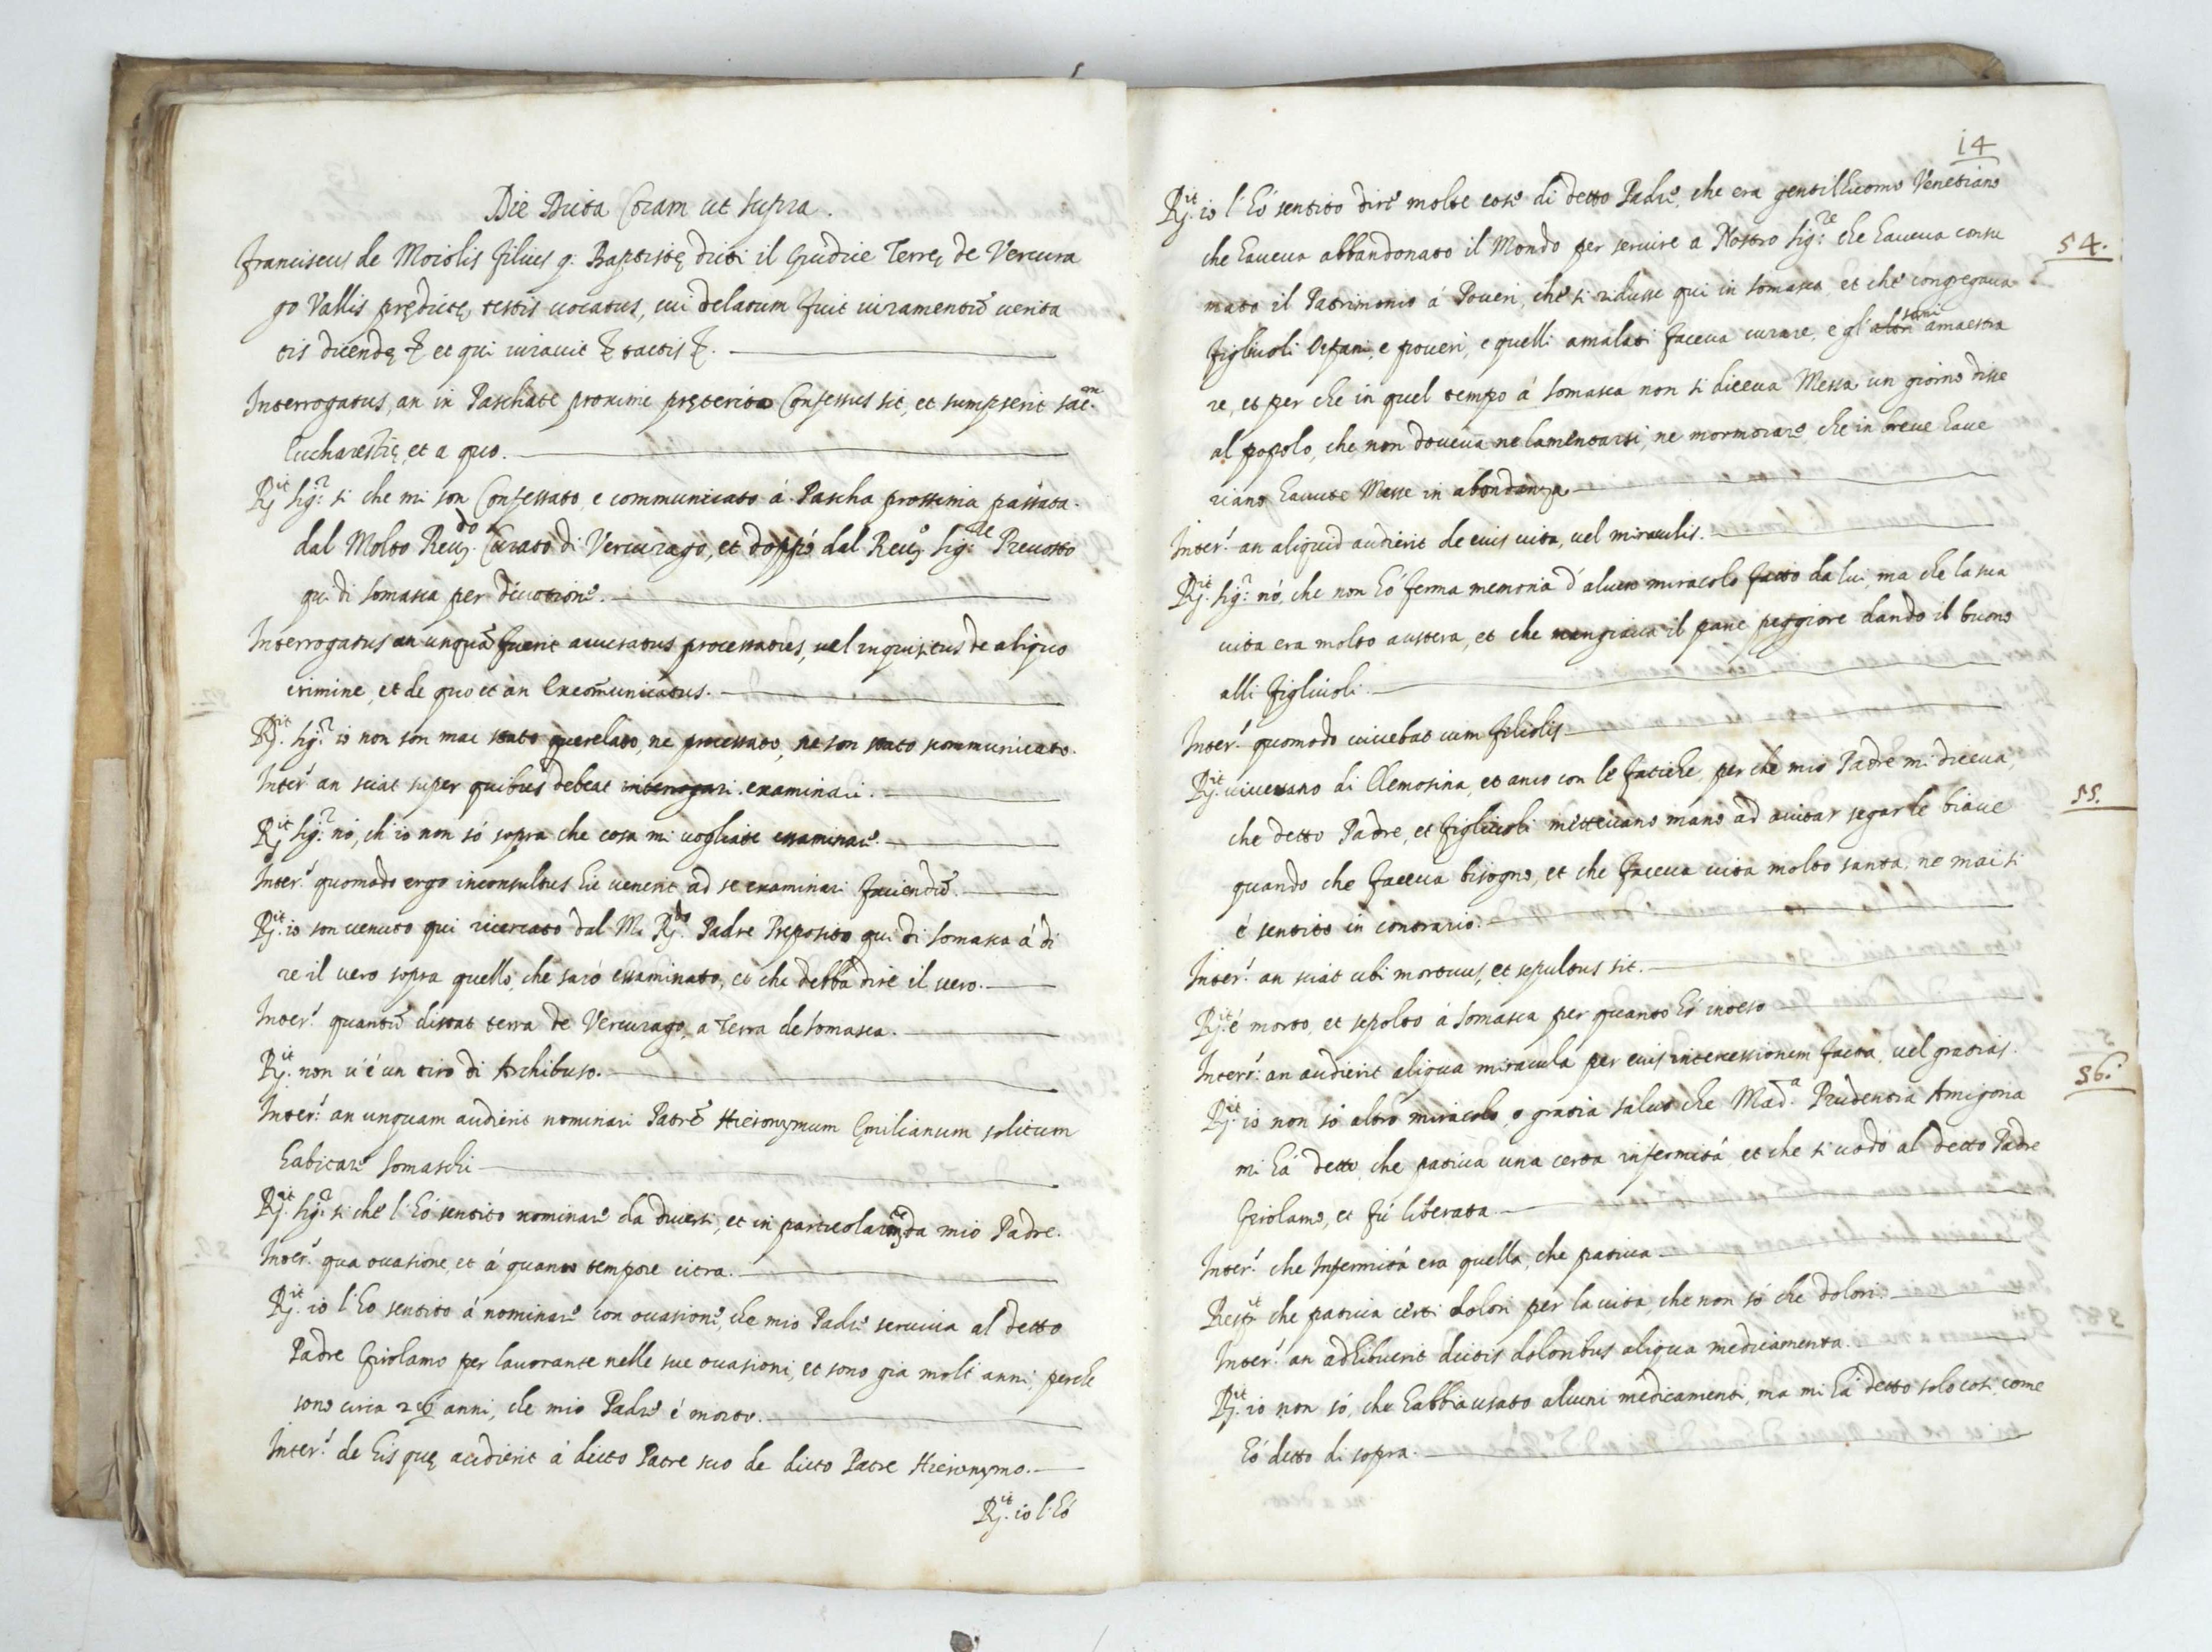 Die Dicta Coram ut supra.
Franciscus de Moiolis filius q. Baptistę dicti il Giudice Terrę de Vercura
go Vallis prędictę testis vocatus, cui delatum fuit iuramentũ verita
tis dicendę et qui iuravit tactis
Interrogatus, an in Paschate proxime pręterito Confessus sit, et sumpserit sac.m
Eucharestię, et a quo.
Rx.it Sig.r si che mi son Confessato, e communicato á Pascha prossima passata
dal Molto Reu.do Curato di Vercurago, et doppó dal Reu.o Sig.re Prevosto
qui di Somasca per divotione.
Interrogatus an unquã fuerit accusatus processatus, vel inquisitus de aliquo
crimine, et de quo et an Excom̃unicatus.
Rx.it Sig.r io non son mai stato querelato, ne processato, ne son stato scommunicato.
Inter.s an sciat super quibus debeat interrogari examinari.
Rx.it Sig.r nó, ch'io non só sopra che cosa mi vogliate essaminare.
Inter.s quomodo ergo inconsultus hic venerit ad se examinari faciendũ.
Rx.it io son venuto qui ricercato dal M. R.do Padre Preposito qui di Somasca á di
re il vero sopra quello, che saró essaminato, et che debba dire il vero.
Inter.s quantũ distat terra de Vercurago, a Terra de Somasca.
Rx.it non v'é un tiro di Archibuso.
Inter.s an unquam audierit nominari Patrẽ Hieronymum Emilianum solitum
habitare Somaschi
Rx.it Sig.r si che l'hó sentito nominare da diversi, et in particolar.te da mio Padre.
Inter.s qua occasione, et á quanto tempore citra.
Rx.it io l'ho sentito á nominare con occasione, che mio Padre serviva al detto
Padre Girolamo per lavorante nelle sue occasioni, et sono gia molt'anni, perche
sono circa anni, che mio Padre é morto.
Inter.s de his quę audierit á dicto Patre suo de dicto Patre Hieronymo.
Rx.it io l'hó
14
Rx.it io l'hó sentito dire molte cose di detto Padre, che era gentilhuomo Venetiano
che haveva abbandonato il Mondo per servire a Nostro Sig.re che haveva consu
54.
mato il Patrimonio á Poveri, che si ridusse qui in Somasca, et che congregava
figlivoli Orfani, e poveri, e quelli amalati faceva curare, e gl'altri sani amaestra
re, et per che in quel tempo á Somasca non si diceva Messa un giorno disse
al popolo, che non doveva ne lamentarsi, ne mormorare che in breve have
riano havute Messe in abondanza
Inter.s an aliquid audierit de eius vita, vel miraculis.
Rx.it Sig.r nó, che non hó ferma memoria d'alcun miracolo fatto da lui, ma che la sua
vita era molto austera, et che mangiava il pane peggiore dando il buono
alli figlivoli
Inter.s quomodo vivebat cum filiolis
Rx.it vivevano di Elemosina, et anco con le fatiche, per che mio Padre mi diceva,
55.
che detto Padre, et figlivoli mettevano mano ad aiutar segar le biave
quando che faceva bisogno, et che faceva vita molto santa, ne mai si
é sentito in contrario.
Inter.s an sciat ubi mortuus, et sepultus sit.
Rx.it é morto, et sepolto á Somasca per quanto hó inteso
Inter.s an audierit aliqua miracula per eius intercessionem facta, vel gratias.
56.
Rx.it io non só altro miracolo, o gratia salvo che Mad.a Prudentia Amigona
mi há detto, che pativa una certa infermitá et che si vodó al detto Padre
Girolamo, et fú liberata
Inter.s che Infermitá era quella, che pativa
Resp.it che pativa certi dolori per la vita, che non só che dolori.
Inter.s an adhibuerit dictis doloribus aliqua medicamenta.
Rx.it io non só, che habbia usato alcuni medicamenti, ma mi há detto solo cosi, come
hó detto di sopra.